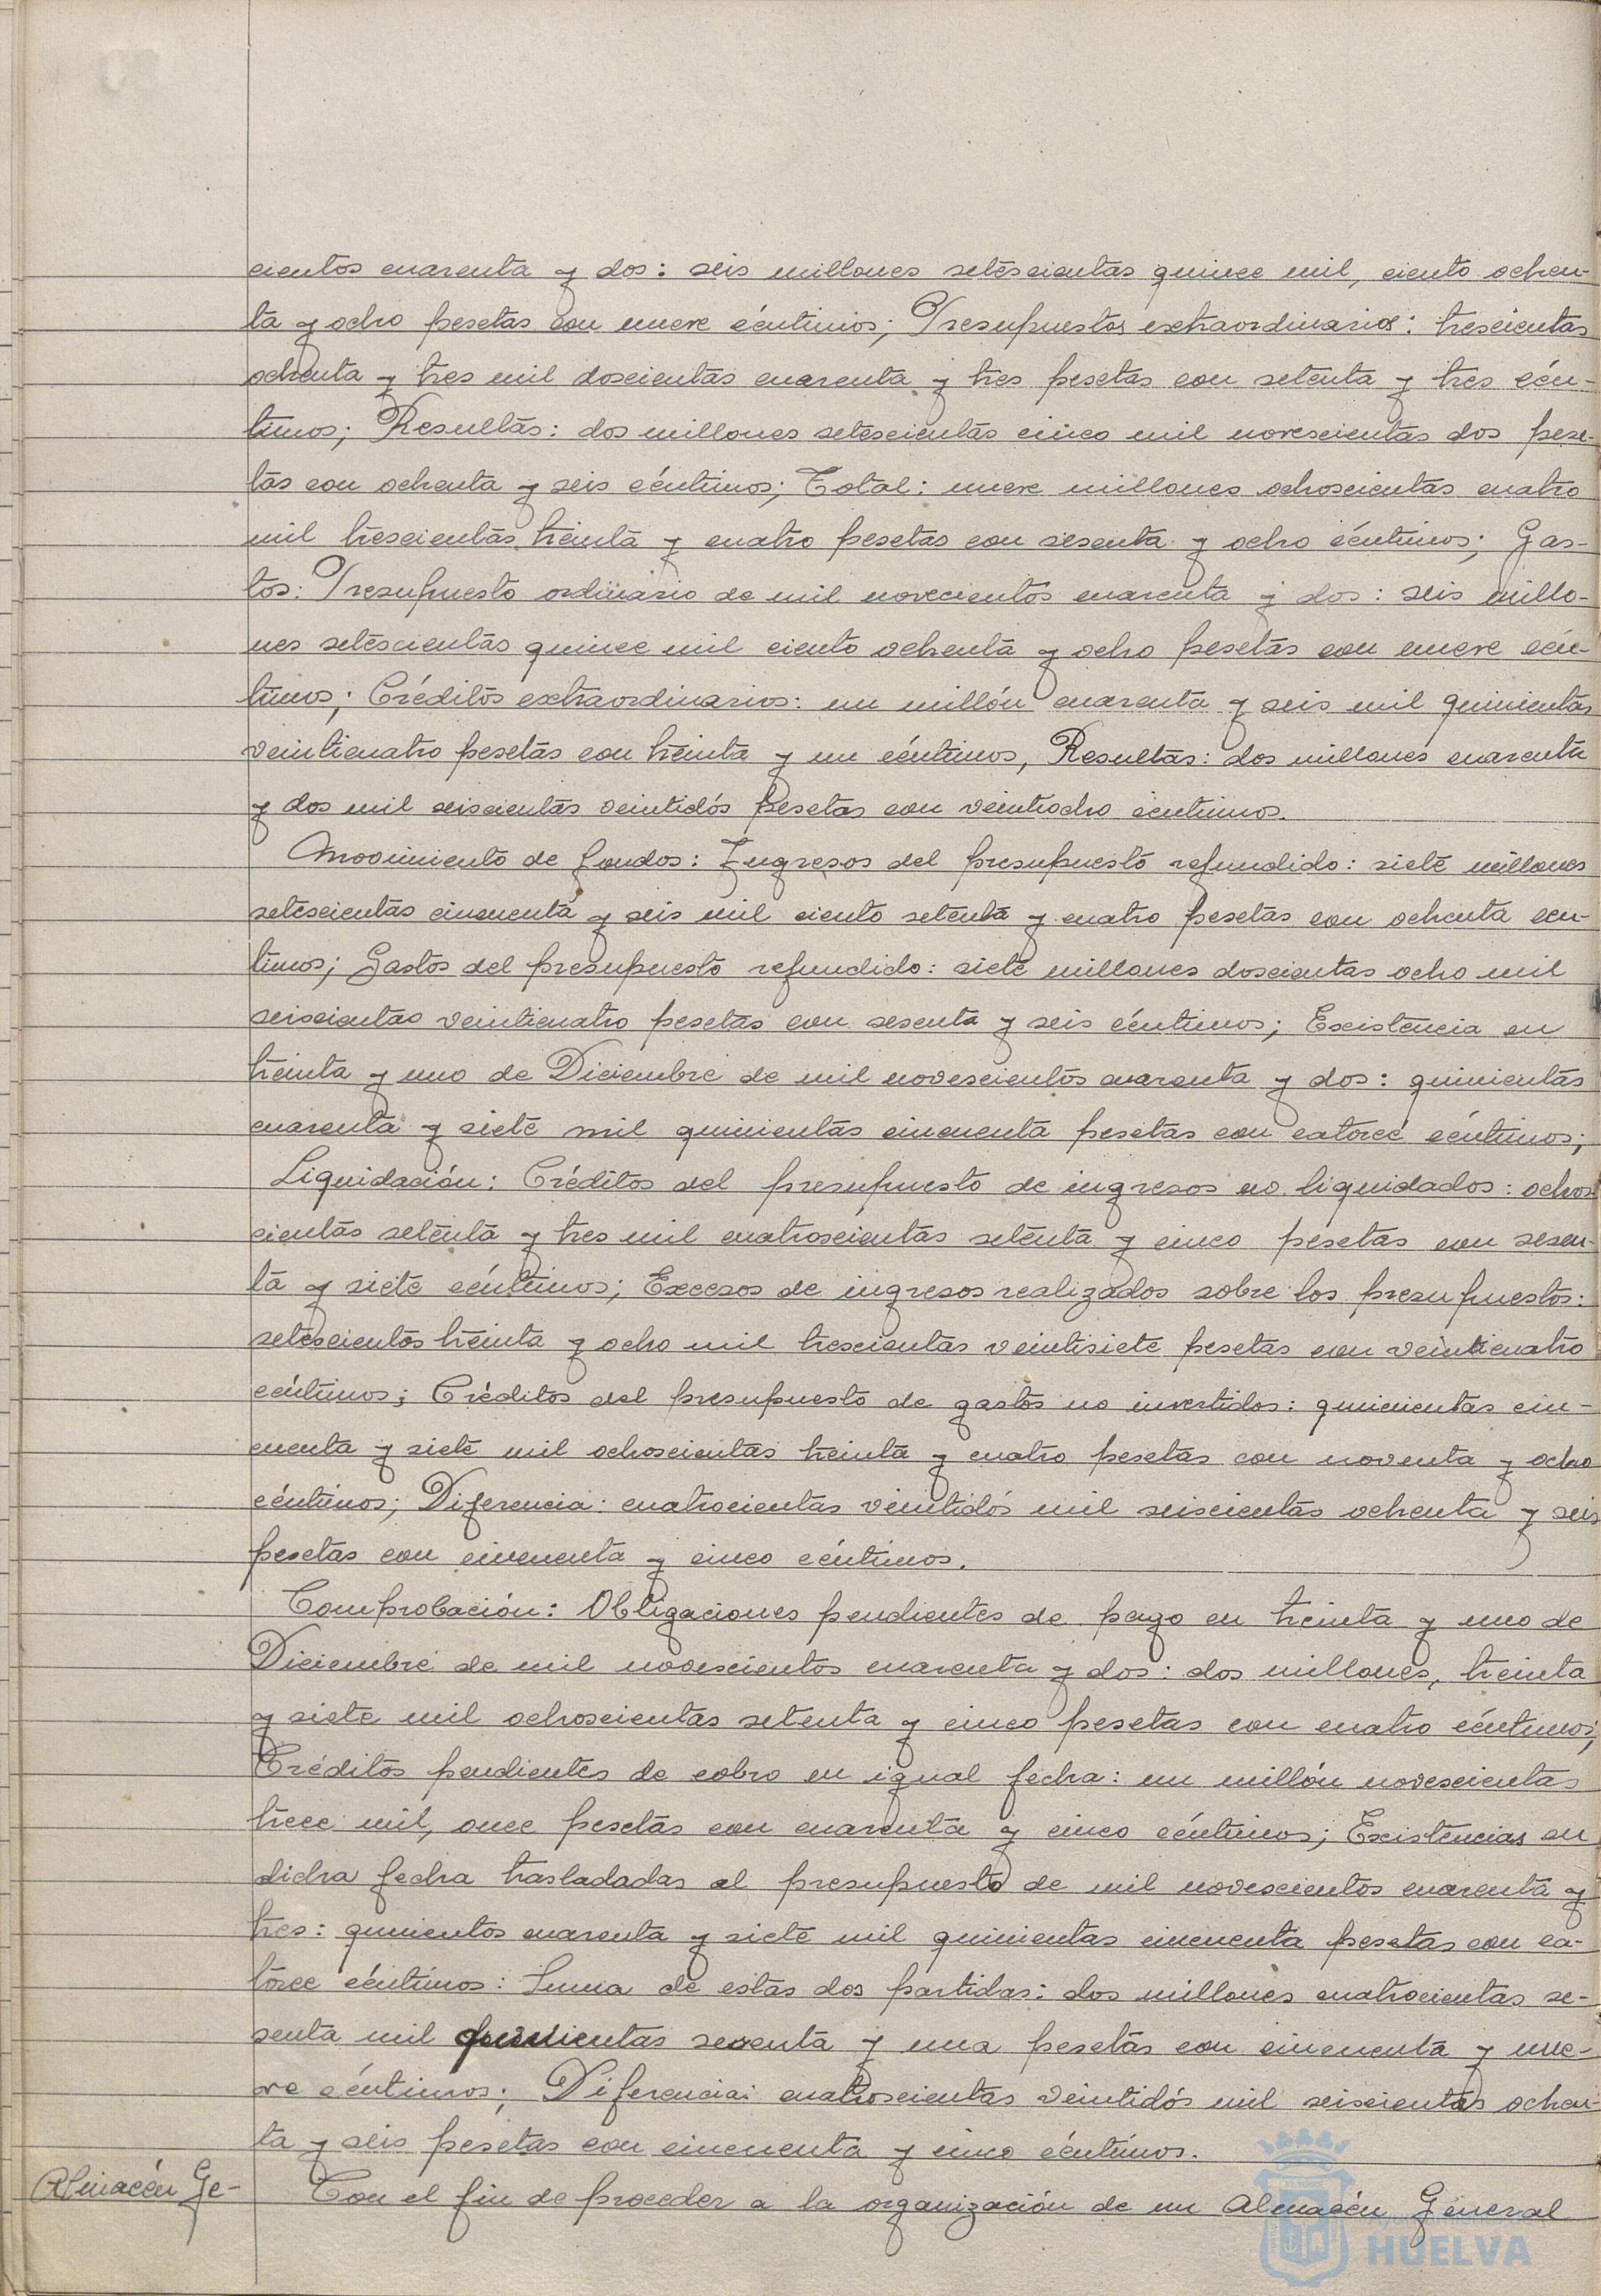 cientos cuarenta y dos: seis millones setescientas quince mil, ciento ochen-
ta y ocho pesetas con nueve céntimos; Presupuestos extraordinarios: trescientas
ochenta y tres mil doscientas cuarenta y tres pesetas con setenta y tres cén-
timos; Resultas: dos millones setescientas cinco mil novescientas dos pese-
tas con ochenta y seis céntimos; Total: nueve millones ochoscientas cuatro
mil trescientas treinta y cuatro pesetas con sesenta y ocho céntimos; Gas-
tos: Presupuesto ordinario de mil novecientos cuarenta y dos: seis millo-
nes setescientas quince mil ciento ochenta y ocho pesetas con nueve cén-
timos; Créditos extraordinarios: un millón cuarenta y seis mil quinientas
veinticuatro pesetas con treinta y un céntimos, Resultas: dos millones cuarenta
y dos mil seiscientas veintidós pesetas con veintiocho céntimos.
Movimiento de fondos: Ingresos del presupuesto refundido: siete millones
setescientas cincuenta y seis mil ciento setenta y cuatro pesetas con ochenta cén-
timos; Gastos del presupuesto refundido: siete millones doscientas ocho mil
seiscientas veinticuatro pesetas con sesenta y seis céntimos; Existencia en
treinta y uno de Diciembre de mil novescientos cuarenta y dos: quinientas
cuarenta y siete mil quinientas cincuenta pesetas con catorce céntimos;
Liquidación: Créditos del presupuesto de ingresos no liquidados: ochos
cientas setenta y tres mil cuatroscientas setenta y cinco pesetas con sesen-
ta y siete céntimos; Excesos de ingresos realizados sobre los presupuestos:
setescientos treinta y ocho mil trescientas veintisiete pesetas con veinticuatro
céntimos; Créditos del presupuesto de gastos no invertidos: quinientas cin-
cuenta y siete mil ochoscientas treinta y cuatro pesetas con noventa y ocho
céntimos; Diferencia: cuatrocientas veintidós mil seiscientas ochenta y seis
pesetas con cincuenta y cinco céntimos.
Comprobación: Obligaciones pendientes de pago en treinta y uno de
Diciembre de mil novescientos cuarenta y dos: dos millones, treinta
y siete mil ochoscientas setenta y cinco pesetas con cuatro céntimos;
Créditos pendientes de cobro en igual fecha: un millón novescientas
trece mil, once pesetas con cuarenta y cinco céntimos; Existencias en
dicha fecha trasladadas al presupuesto de mil novescientos cuarenta y
tres: quinientos cuarenta y siete mil quinientas cincuenta pesetas con ca-
torce céntimos: Suma de estas dos partidas: dos millones cuatrocientas se-
senta mil quinientas sesenta y una pesetas con cincuenta y nue-
ve céntimos; Diferencia: cuatroscientas veintidós mil seiscientas ochen-
ta y seis pesetas con cincuenta y cinco céntimos.
Almacén Ge-
Con el fin de proceder a la organización de un Almacén General
HUELVA